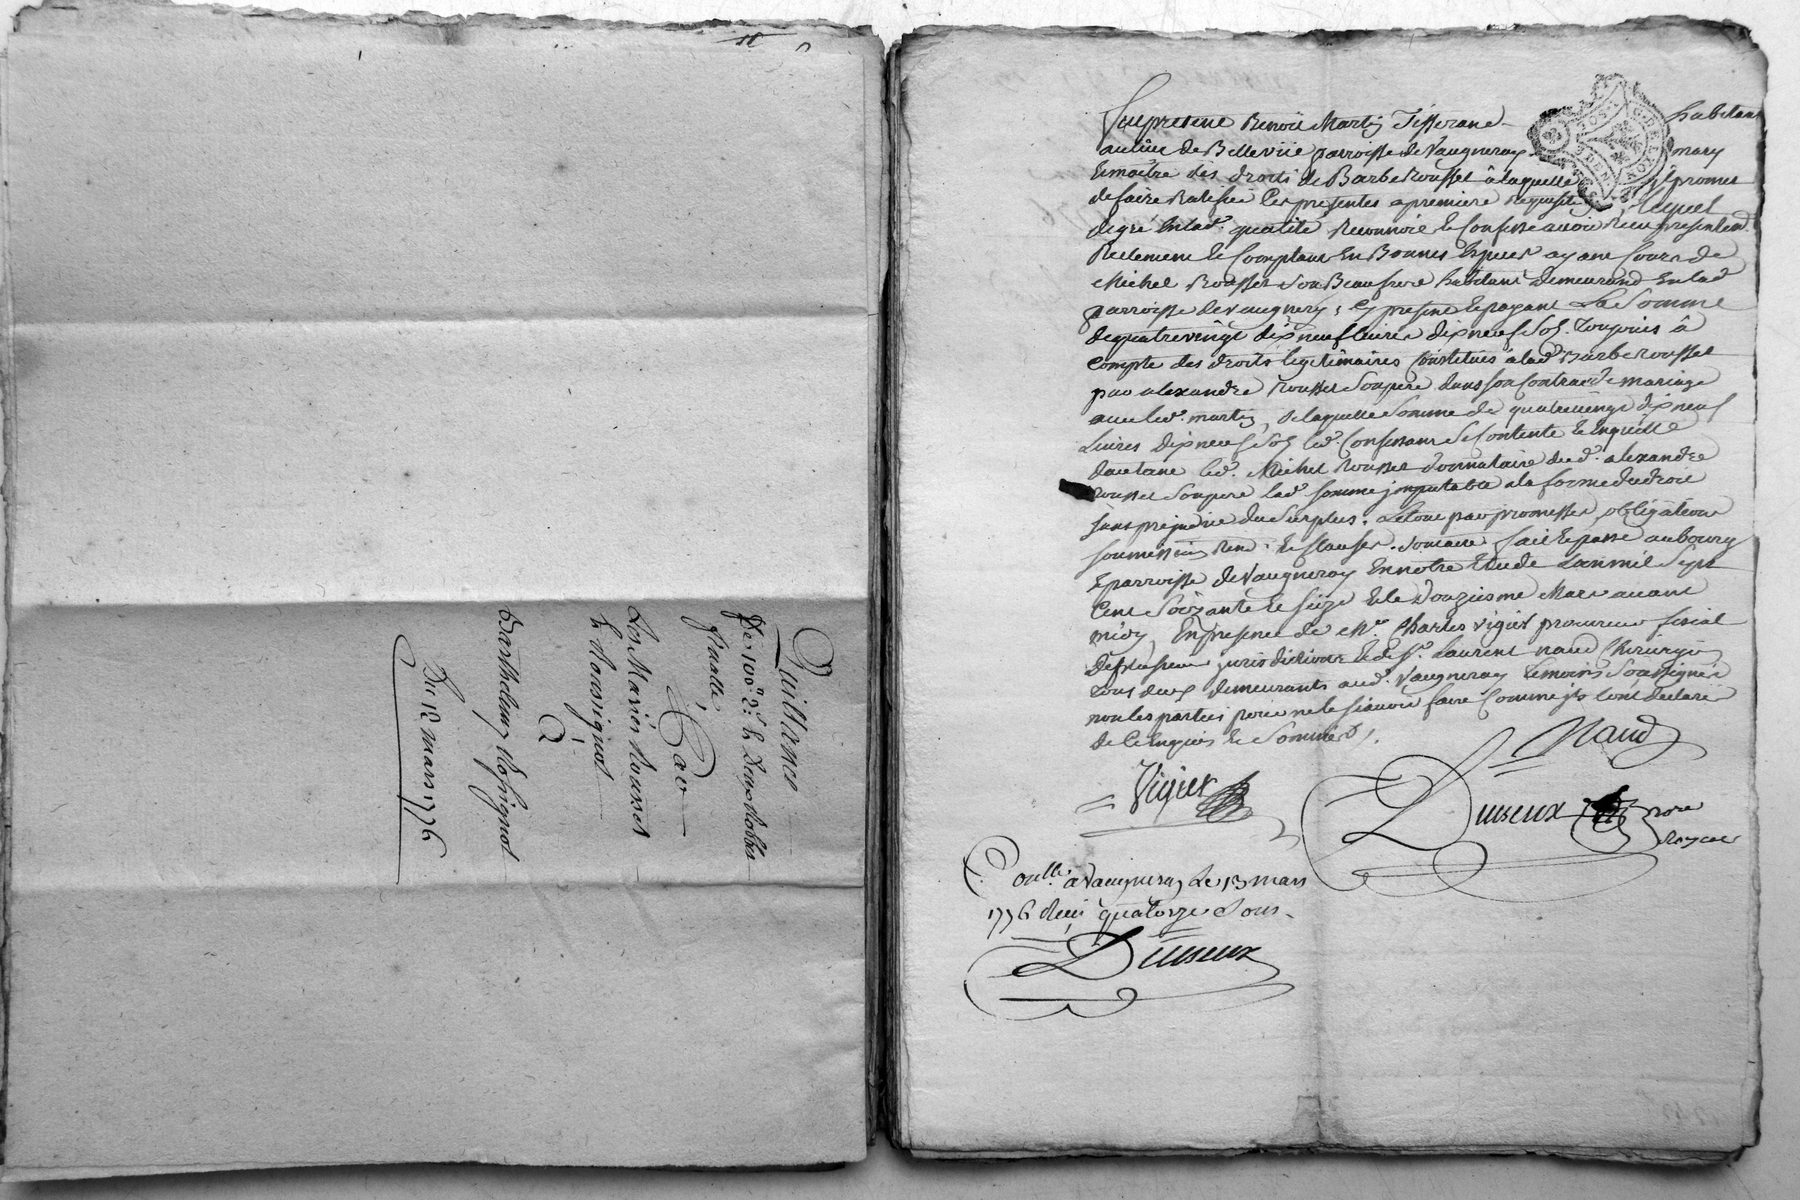 Quittance
De 100ᵗᵗ 2ˢ & deux Robbes
Passée,
Par
Les Mariés Rousset
& Rossignol
à
Barthelemy Rossignol
Du 12 mars 1776
fut present Benoit Martin Tisserand habitant
au lieu de Bellevüe parroisse de Vaugneray mary
& maître des droits de Barbe Rousset à laquelle il promet
de faire Ratifier les presentes a premiere Requisition, lequel
de gré en lad. qualité Reconnoit & Confesse avoir Reçu presentemt.
Reellement & Comptant en Bonnes Especes ayant Cours de
Michel Rousset son Beaufrere habitant demeurand en lad
parroisse de Vaugneray, cy present & payant La Somme
de quatrevingt dix neuf livres dix neuf Sols. Toujours à
Compte des droits legitimaires Constitués à lad Barbe Rousset
par alexandre Rousset Son pere dans son Contract de mariage
avec led. martin, de laquelle Somme de quatrevingt dix neuf
Livres dix neuf Sols led. Confessant Se Contente & En quitte
d'autant led. Michel Rousset donnataire dud. alexandre
Rousset Son pere lad somme jmputable a la forme du droit
Sans prejudice du Surplus. Le tout par promesses, obligations
soumissions Ren. & Clauses. dont acte fait & passé au bourg
& parroisse de Vaugneray En notre Etude L'an mil Sept
Cent Soixante & Seize & le Douzieme Mars avant
midy En presence de Mᵉ Charles Vigier procureur fiscal
de plusieurs jurisdictions & de Sʳ. Laurent naud Chirurgien
tous deux demeurants aud. Vaugneray temoins Soussignés
non les parties pour ne le sçavoir faire Comme jls l'ont declaré
de Ce Enquis & Sommés
Naud
Vigier
Duseux nore
Royal
Conllé. à Vaugneray Le 13 mars
1776 Reçu quatorze Sous
Duseux